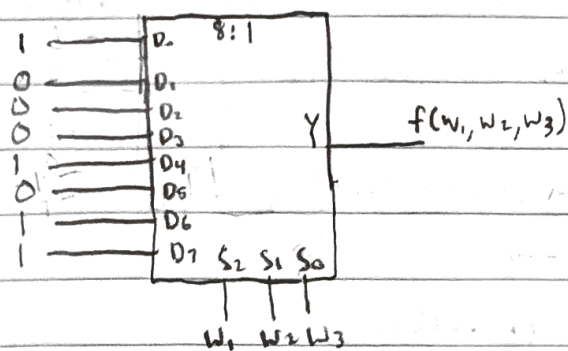 8:1
1 D0
0 D1
0 D2
0 D3
1 D4
0 D5
1 D6
1 D7
Y f(w1, w2, w3)
S2 S1 S0
w1 w2 w3